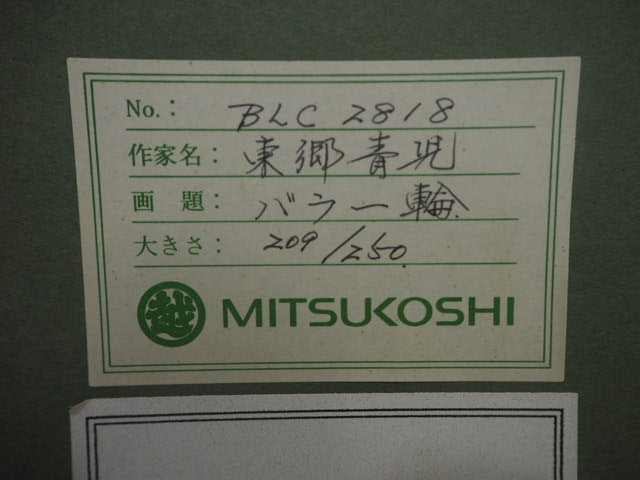 No.： BLC 2818
作家名： 東郷青児
画　題： バラ一輪
大きさ： 209/250.
越 MITSUKOSHI